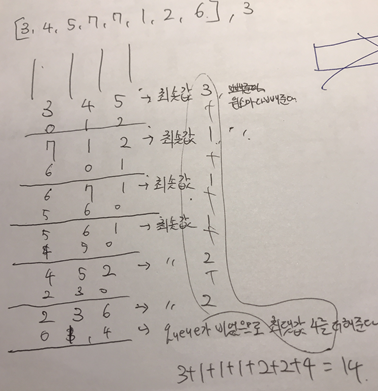 [3, 4, 5, 7, 7, 1, 2, 6], 3
3 4 5 → 최솟값 3
원소마다 빼준다
+
0 1 2
7 1 2 → 최솟값 1 "
+
6 0 1
6 7 1 → 최솟값 1
+
5 6 0
5 6 1 → 최솟값 1
+
4 5 0
4 5 2 → " 2
+
2 3 0
2 3 6 → " 2
0 1, 4 → queue가 비었으므로 최댓값 4를 더해준다
3+1+1+1+2+2+4 = 14.